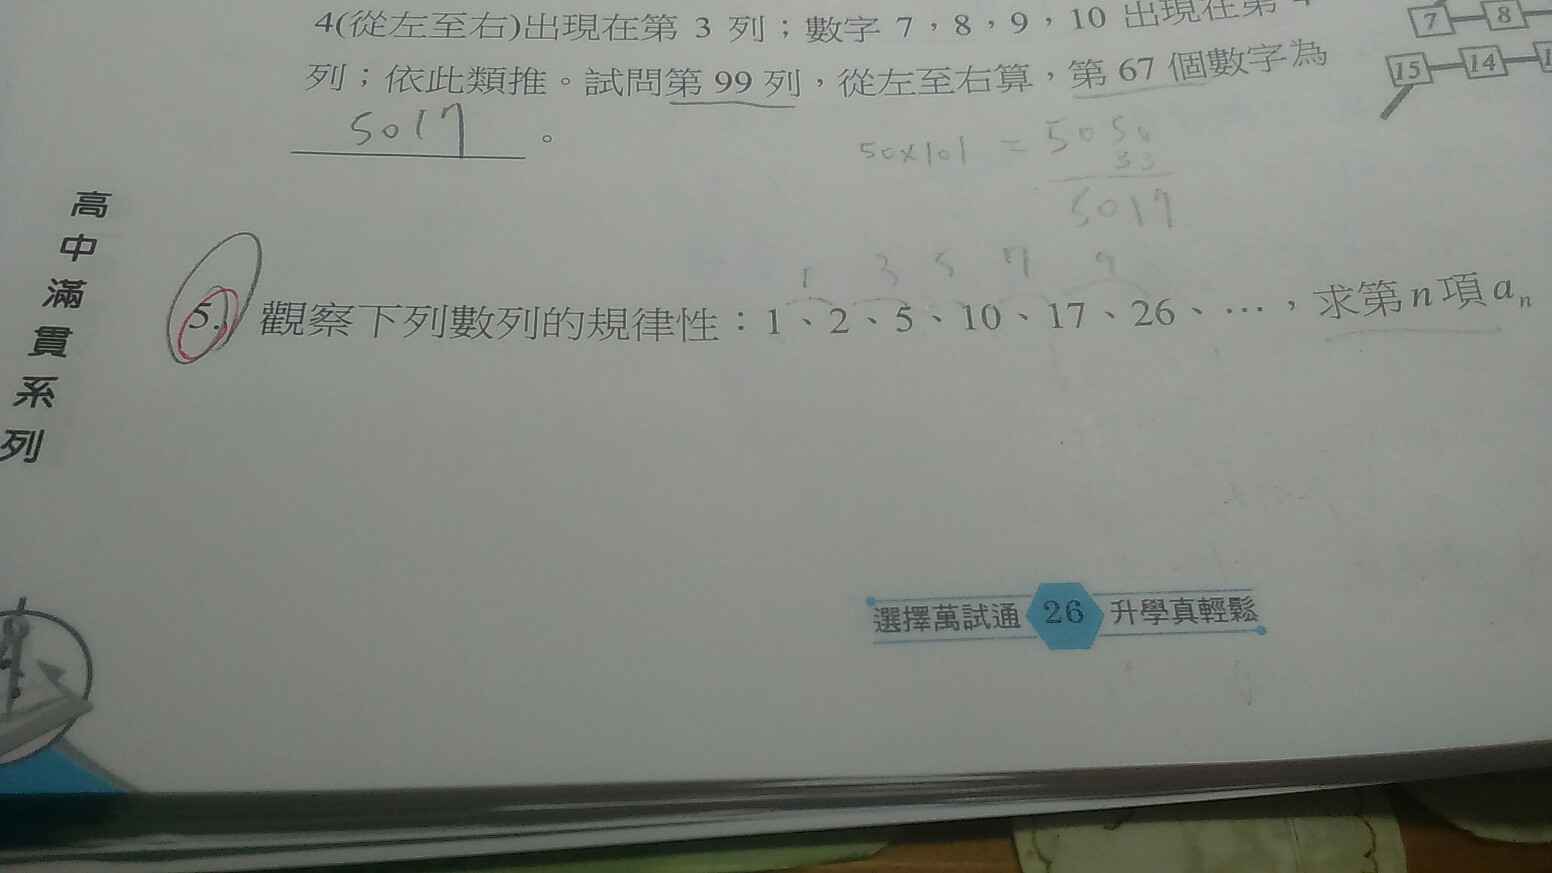 4(從左至右)出現在第 3 列；數字 7，8，9，10 出現在第
列；依此類推。試問第 99 列，從左至右算，第 67 個數字為
5017 。
50×101 = 5050
33
5017
7 8
15 14
1 3 5 7 9
5. 觀察下列數列的規律性：1、2、5、10、17、26、…，求第 n 項 aₙ
高中滿貫系列
選擇萬試通 26 升學真輕鬆